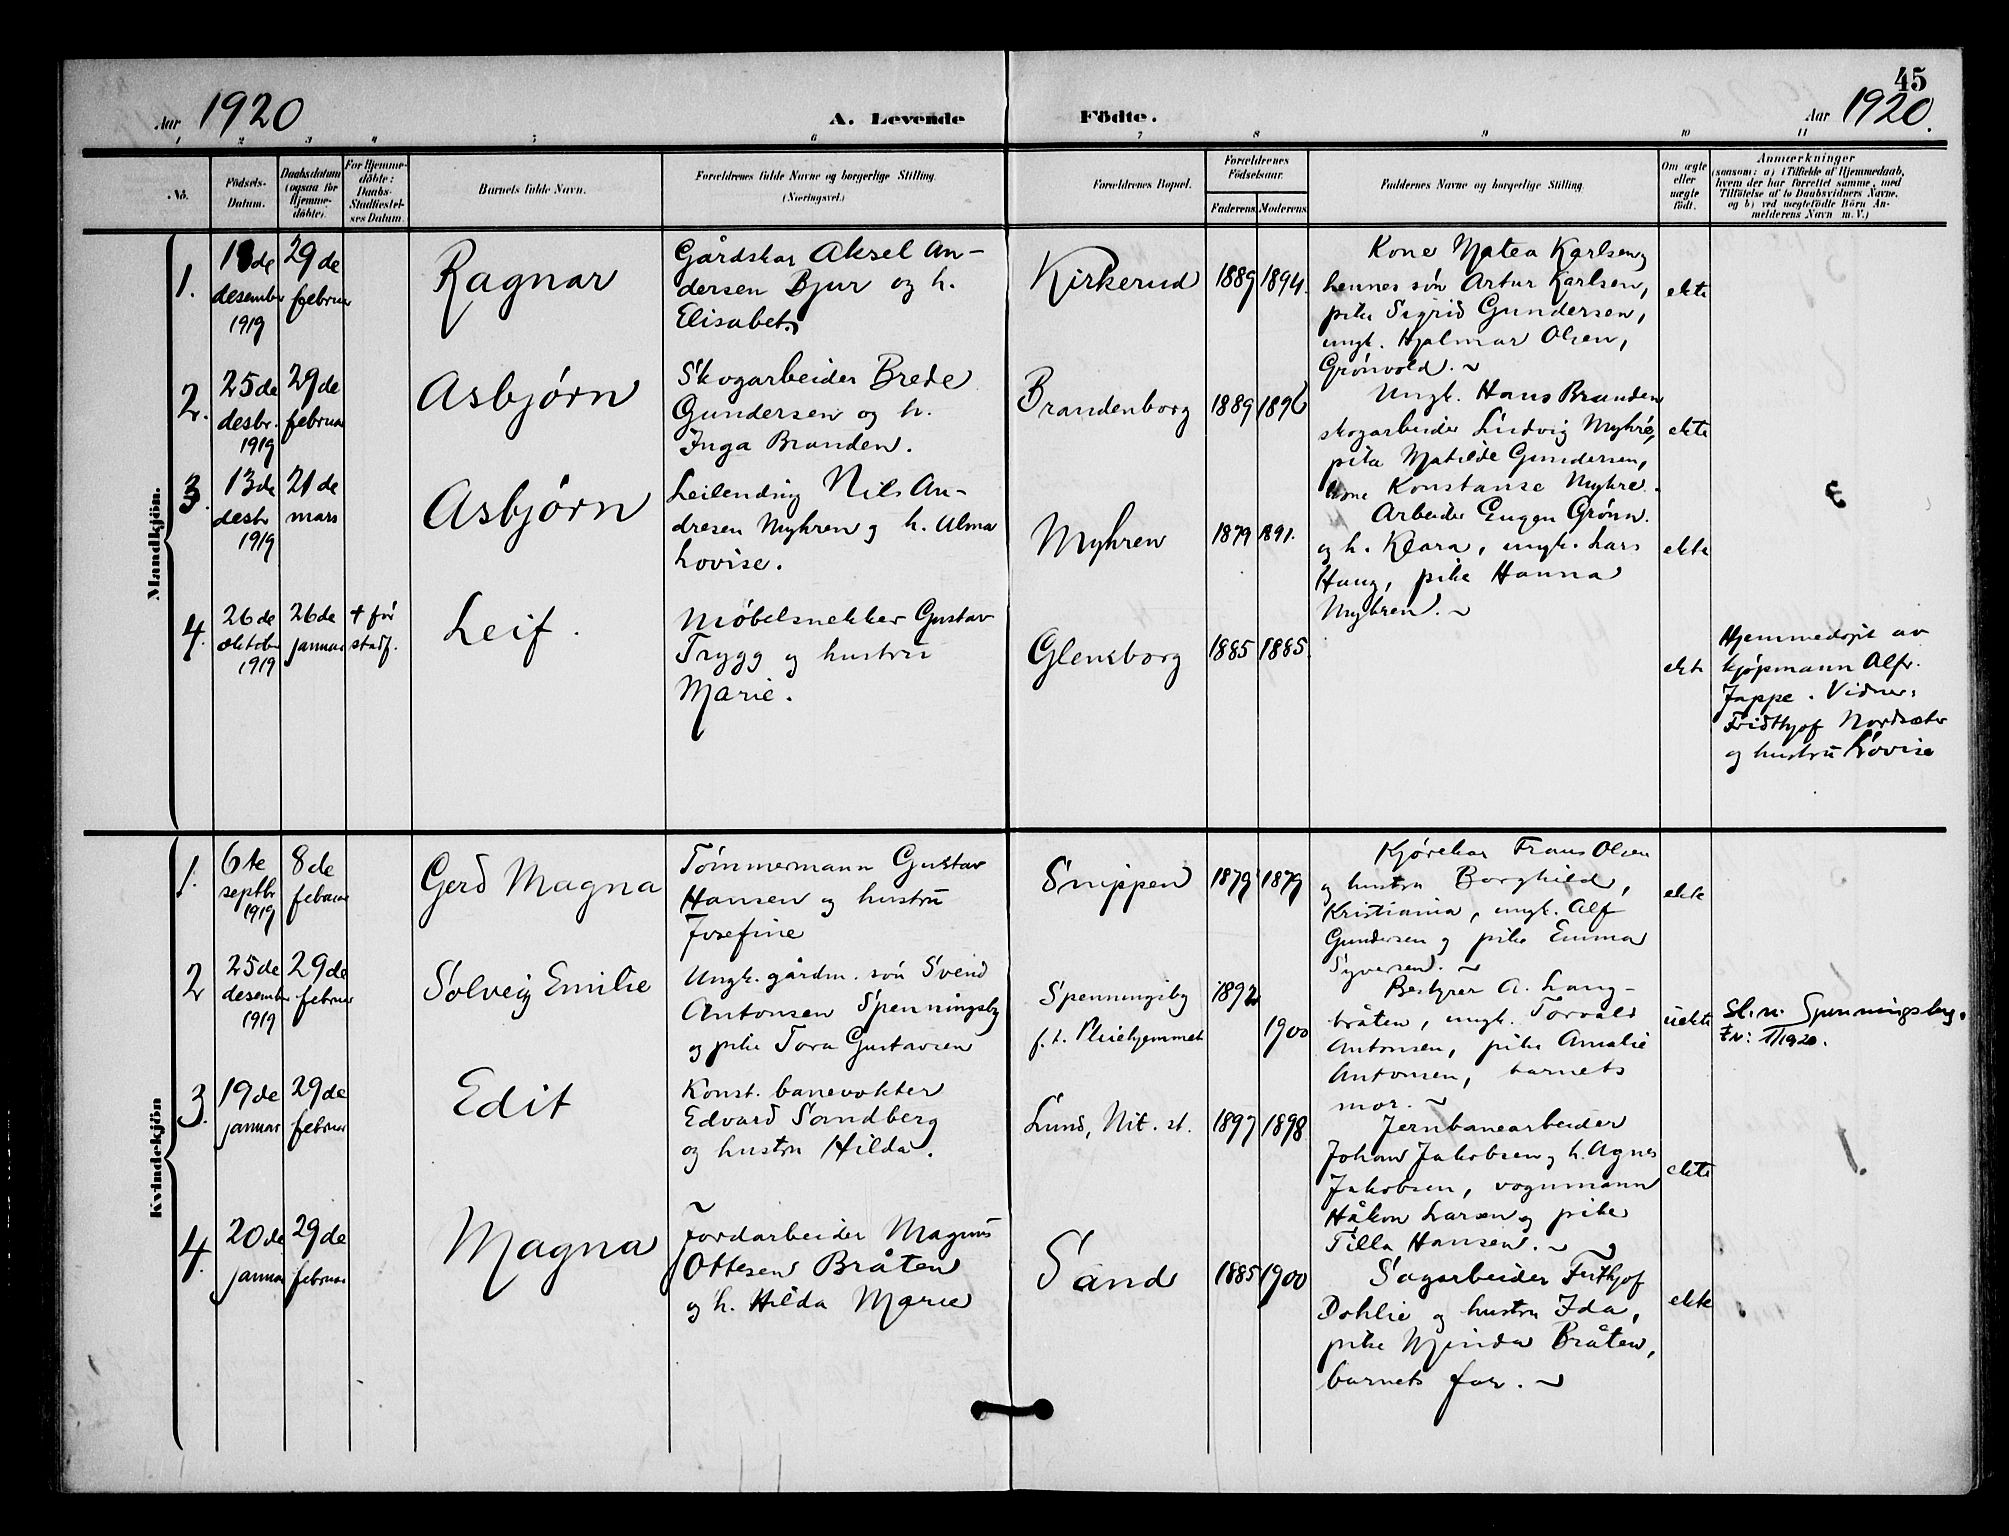 45
Aar 1920
A. Levende Födte.
Aar 1920.
1 2 3 4 5 6 7 8 9 10 11
No.
Födsels-
Datum.
Daabsdatum
(ogsaa for
Hjemme-
döbte).
For Hjemme-
döbte:
Daabs-
Stadfæstel-
ses Datum.
Barnets fulde Navn.
Forældrenes fulde Navne og borgerlige Stilling.
(Næringsvei.)
Forældrenes Bopæl.
Forældrenes
Födselsaar.
Faderens
Moderens
Faddernes Navne og borgerlige Stilling.
Om ægte
eller
uægte
födt.
Anmærkninger
(saasom: a) i Tilfælde af Hjemmedaab,
hvem der har forrettet samme, med
Tilföielse af to Daabsvidners Navne.
og b) ved uægtefödte Börn An-
melderens Navn m. V.)
Mandkjön.
1.
18de
desember
1919
29de
februar
Ragnar
Gårdskar Aksel An-
dersen Bjur og h.
Elisabet.
Kirkerud
1889
1894.
Kone Matea Karlsen og
hennes søn Artur Karlsen,
pike Sigrid Gundersen,
ungk. Hjalmar Olsen,
Grønvold. ~
ekte
2.
25de
desbr.
1919
29de
februar
Asbjørn
Skogarbeider Brede
Gundersen og h.
Inga Branden.
Brandenborg
1889
1896
Ungk. Hans Branden
skogarbeider Ludvig Myhre,
pike Matilde Gundersen,
kone Konstanse Myhre.
ekte
3.
13de
desbr
1919
21de
mars
Asbjørn
Leilending Nils An-
dresen Myhren og h. Alma
Lovise.
Myhren
1879
1891.
Arbeider Eugen Grønn.
og h. Klara, ungk. Lars
Haug, pike Hanna
Myhren. ~
ekte
3
4.
26de
oktober
1919
26de
januar
+ før
stadf.
Leif.
Møbelsnekker Gustav
Trygg og hustru
Marie.
Glensborg
1885
1885.
ekte
Hjemmedøpt av
kjøpmann Alfr.
Jappe. Vidner:
Fridthjof Nordsæter
og hustru Lovise
Kvindekjön
1.
6te
septbr
1919
8de
februar
Gerd Magna
Tømmermann Gustav
Hansen og hustru
Josefine
Snippen
1879
1879
Kjørekar Frans Olsen
og hustru Borghild,
Kristiania, ungk. Alf
Gundersen og pike Emma
Syversen. ~
ekte
2
25de
desember
1919
29de
februar
Solveig Emilie
Ungk. gårdm. søn Svend
Antonsen Spenningsby
og pike Tora Gustavsen
Spenningsby
f. t. Pleiehjemmet
1892
1900
Bestyrer A. Lang-
bråten, ungk. Torvald
Antonsen, pike Amalie
Antonsen, barnets
mor. ~
uekte
Sl. n. Spenningsby.
1/1920.
3.
19de
januar
29de
februar
Edit
Konst. banevokter
Edvard Sandberg
og hustru Hilda.
Lund, Nit. st.
1897
1898
Jernbanearbeider
Johan Jakobsen og h. Agnes
Jakobsen, vognmann
Håkon Larsen og pike
Tilla Hansen. ~
ekte
1.
4.
20de
januar
29de
februar
Magna
Jordarbeider Magnus
Ottesen Bråten
og h. Hilda Marie
Sand
1885
1900
Sagarbeider Frithjof
Dohlie og hustru Ida,
pike Minda Bråten,
barnets far. ~
ekte